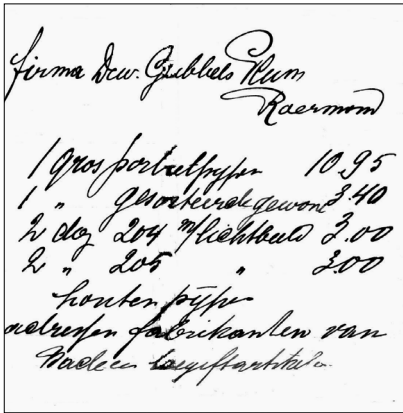 firma Dew. Gubbels Hum
Roermond
1 gros portretpijpen 10.95
1 " gesorteerde gewone 3.40
2 doz 204 m/lichtbeeld 3.00
2 " 205 " 3.00
houten pijpen
adressen fabrikanten van
toegiftartikelen